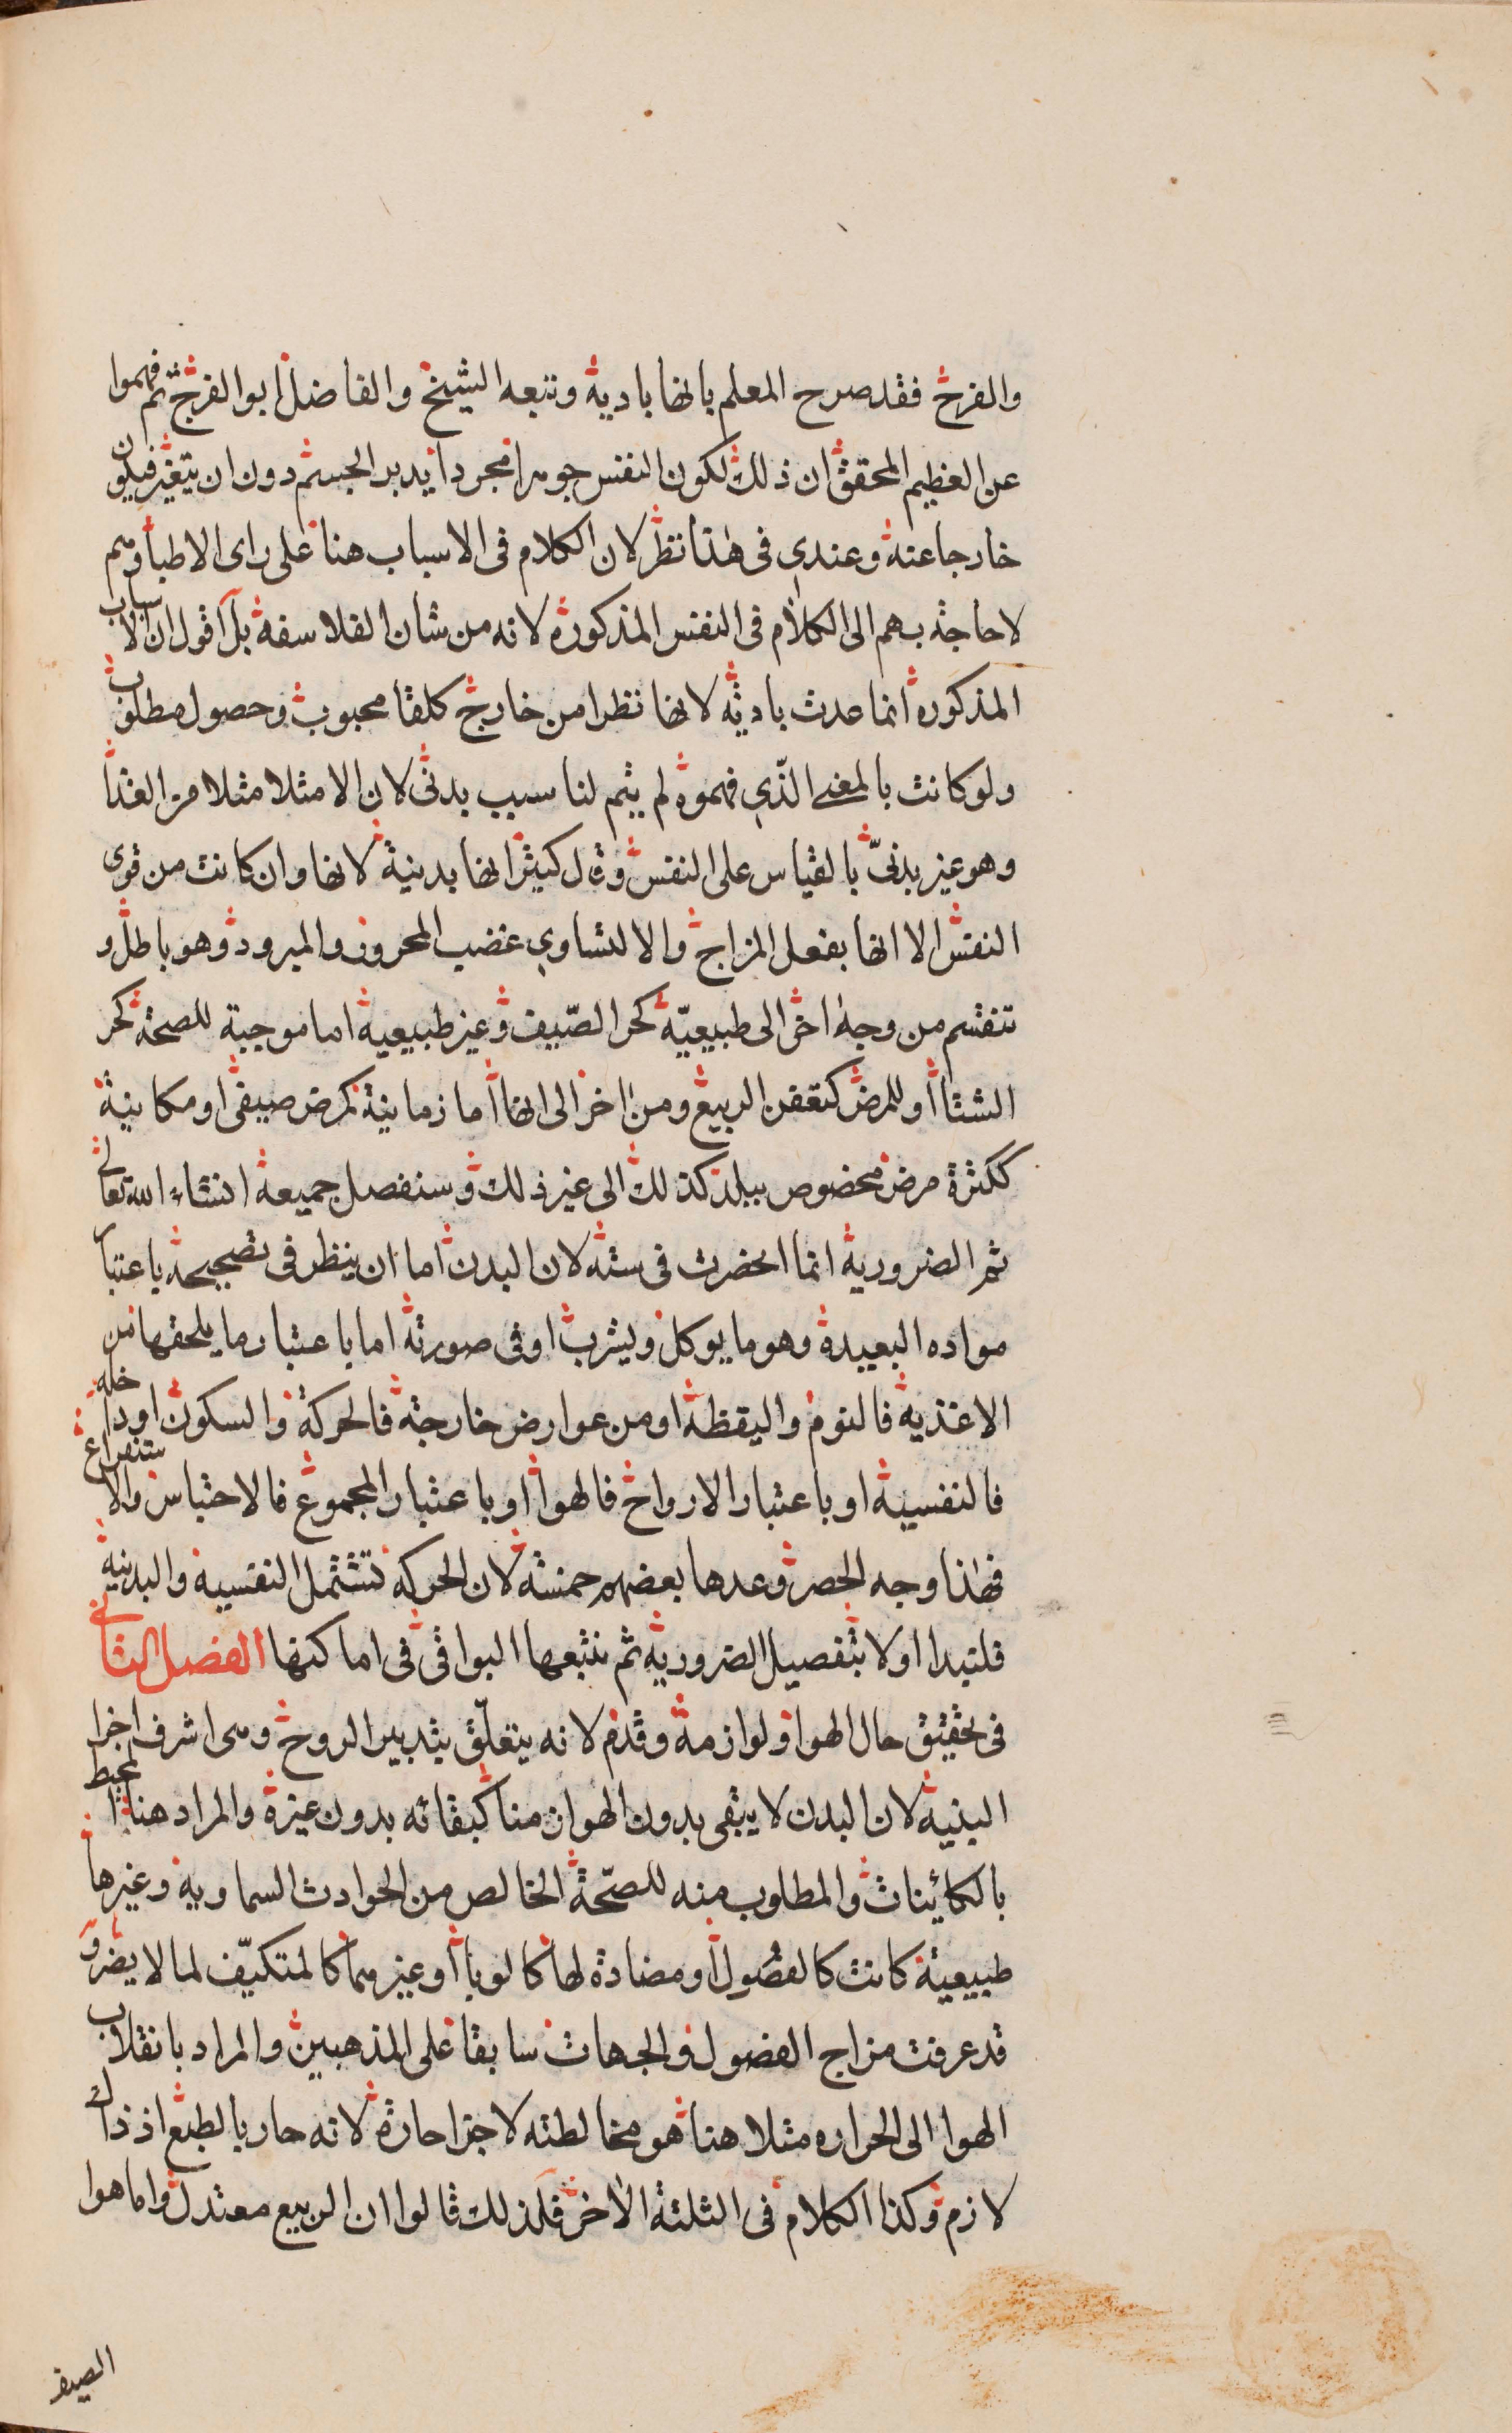 والفرح فقد صرح المعلم بانها بادية وتبعه الشيخ والفاضل ابو الفرج ثم فهموا
عن العظيم المحقق ان ذلك لكون النفس جوهرا مجردا يدبر الجسم دون ان يتغير فيكون
خارجا عنه وعندي في هذا نظر لان الكلام في الاسباب هنا على راى الاطبا وهم
لا حاجة بهم الى الكلام في النفس المذكوره لانه من شان الفلاسفه بل اقول ان الاسباب
المذكوره انما عدت باديه لانها تطرا من خارج كلقا محبوب وحصول مطلوب
ولو كانت بالمعنى الذي فهموه لم يتم لنا سبب بدنى لان الامثلا مثلا من الغذا
وهو غير بدنيّ بالقياس على النفس وقال كثير انها بدنية لانها وان كانت من قوى
النفس الا انها بفعل المزاج والا لتساوي غضب المحرور والمبرود وهو باطل و
تنقسم من وجه اخر الى طبيعيّه كحر الصّيف وغير طبيعيه اما موجبة للصحة كحر
الشتا او للمرض كتعفن الربيع ومن اخر الى انها اما زمانية كمرض صيفى او مكانية
ككثرة مرض مخصوص ببلد كذلك الى غير ذلك وسنفصل جميعه انشاء الله تعالى
ثم الضروريه انما انحصرت في سته لان البدن اما ان ينظر في تصحيحه باعتبار
مواده البعيدة وهو ما يوكل ويشرب او في صورته اما باعتبار ما يلحقها من
الاغذيه فالنوم واليقظه او من عوارض خارجة فالحركة والسكون او داخله
فالنفسيه او باعتبار الارواح فالهوا او باعتبار المجموع فالاحتباس والاستفراغ
فهذا وجه الحصر وعدها بعضهم خمسه لان الحركه تشتمل النفسيه والبدنيه
فلتبدا اولا بتفصيل الضروريه ثم نتبعها البواقي في اماكنها الفصل الثاني
في تحقيق حال الهوا ولوازمه وقدم لانه يتعلّق بتدبير الروح وهى اشرف اجزا
البنيه لان البدن لا يبقى بدون الهوا زمنا كبقائه بدون غيره والمراد هنا المحيط
بالكائينات والمطلوب منه للصّحة الخالص من الحوادث السماويه وغيرها
طبيعية كانت كالفصول او مضادة لها كالوبا او غيرهما كالمتكيّف لما لا يضر و
قد عرفت مزاج الفصول والجهات سابقا على المذهبين والمراد بانقلاب
الهوا الى الحراره مثلا هنا هو مخالطته لاجزا حارة لانه حار بالطبع اذ ذاك
لازم وكذا الكلام في الثلثه الاخر فلذلك قالوا ان الربيع معتدل واما هوا
الصيف